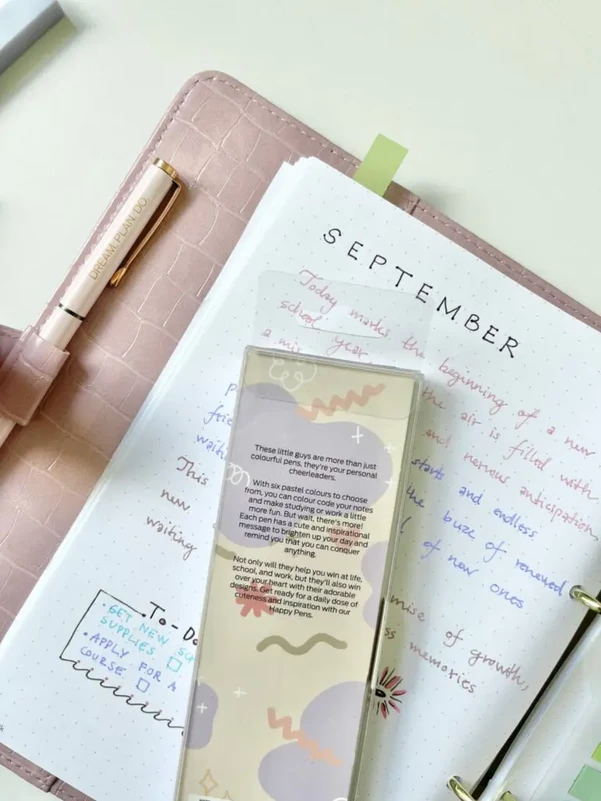 DREAM. PLAN. DO.
SEPTEMBER
Today marks the beginning of a new
school year
the air is filled with
and nervous anticipation,
starts and endless
the buzz of renewed
of new ones
This
new
waiting
mise of growth,
ss memories
To-Do
• GET NEW SC
SUPPLIES
• APPLY FOR A
COURSE
These little guys are more than just
colourful pens, they're your personal
cheerleaders.
With six pastel colours to choose
from, you can colour code your notes
and make studying or work a little
more fun. But wait, there's more!
Each pen has a cute and inspirational
message to brighten up your day and
remind you that you can conquer
anything.
Not only will they help you win at life,
school, and work, but they'll also win
over your heart with their adorable
designs. Get ready for a daily dose of
cuteness and inspiration with our
Happy Pens.